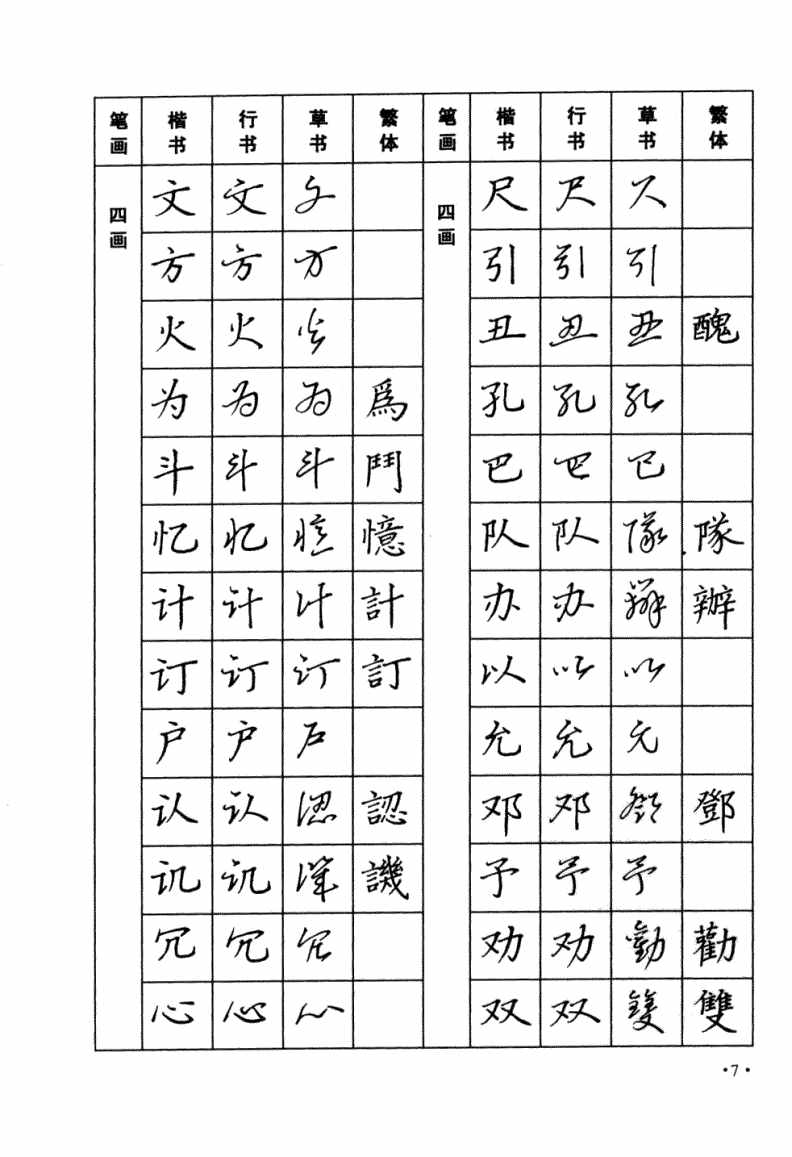 笔画 楷书 行书 草书 繁体 笔画 楷书 行书 草书 繁体
四画 文 文 文 四画 尺 尺 尺
方 方 方 引 引 引
火 火 火 丑 丑 丑 醜
为 为 为 爲 孔 孔 孔
斗 斗 斗 鬥 巴 巴 巴
忆 忆 憶 憶 队 队 隊 隊
计 计 计 計 办 办 辦 辦
订 订 订 訂 以 以 以
户 户 户 允 允 允
认 认 認 認 邓 邓 鄧 鄧
讥 讥 譏 譏 予 予 予
冗 冗 冗 劝 劝 勸 勸
心 心 心 双 双 雙 雙
·7·